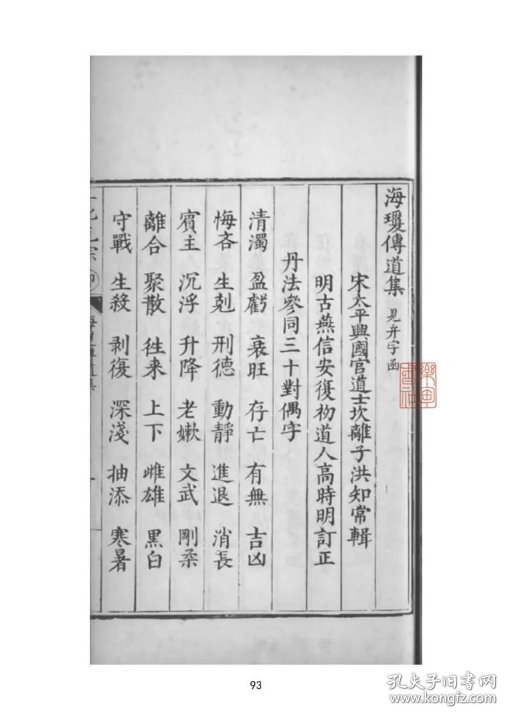 海瓊傳道集 見弁字函
宋太平興國官道士坎離子洪知常輯
明古燕信安復礽道人高時明訂正
丹法參同三十對偶字
清濁 盈虧 衰旺 存亡 有無 吉凶
悔吝 生剋 刑德 動靜 進退 消長
賓主 沉浮 升降 老嫩 文武 剛柔
離合 聚散 徃来 上下 雌雄 黑白
守戰 生殺 剥復 深淺 抽添 寒暑
93
孔夫子旧书网